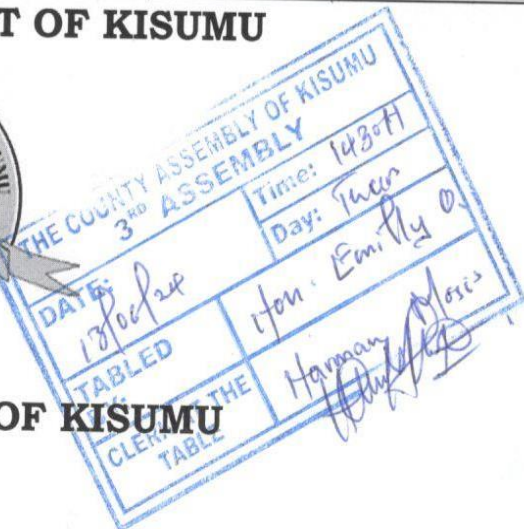 T OF KISUMU
THE COUNTY ASSEMBLY OF KISUMU
3RD ASSEMBLY
Time: 1430H
DATE:
Day:
TABLED
Hon. Emilly O.
CLERK AT THE TABLE
Harman
OF KISUMU